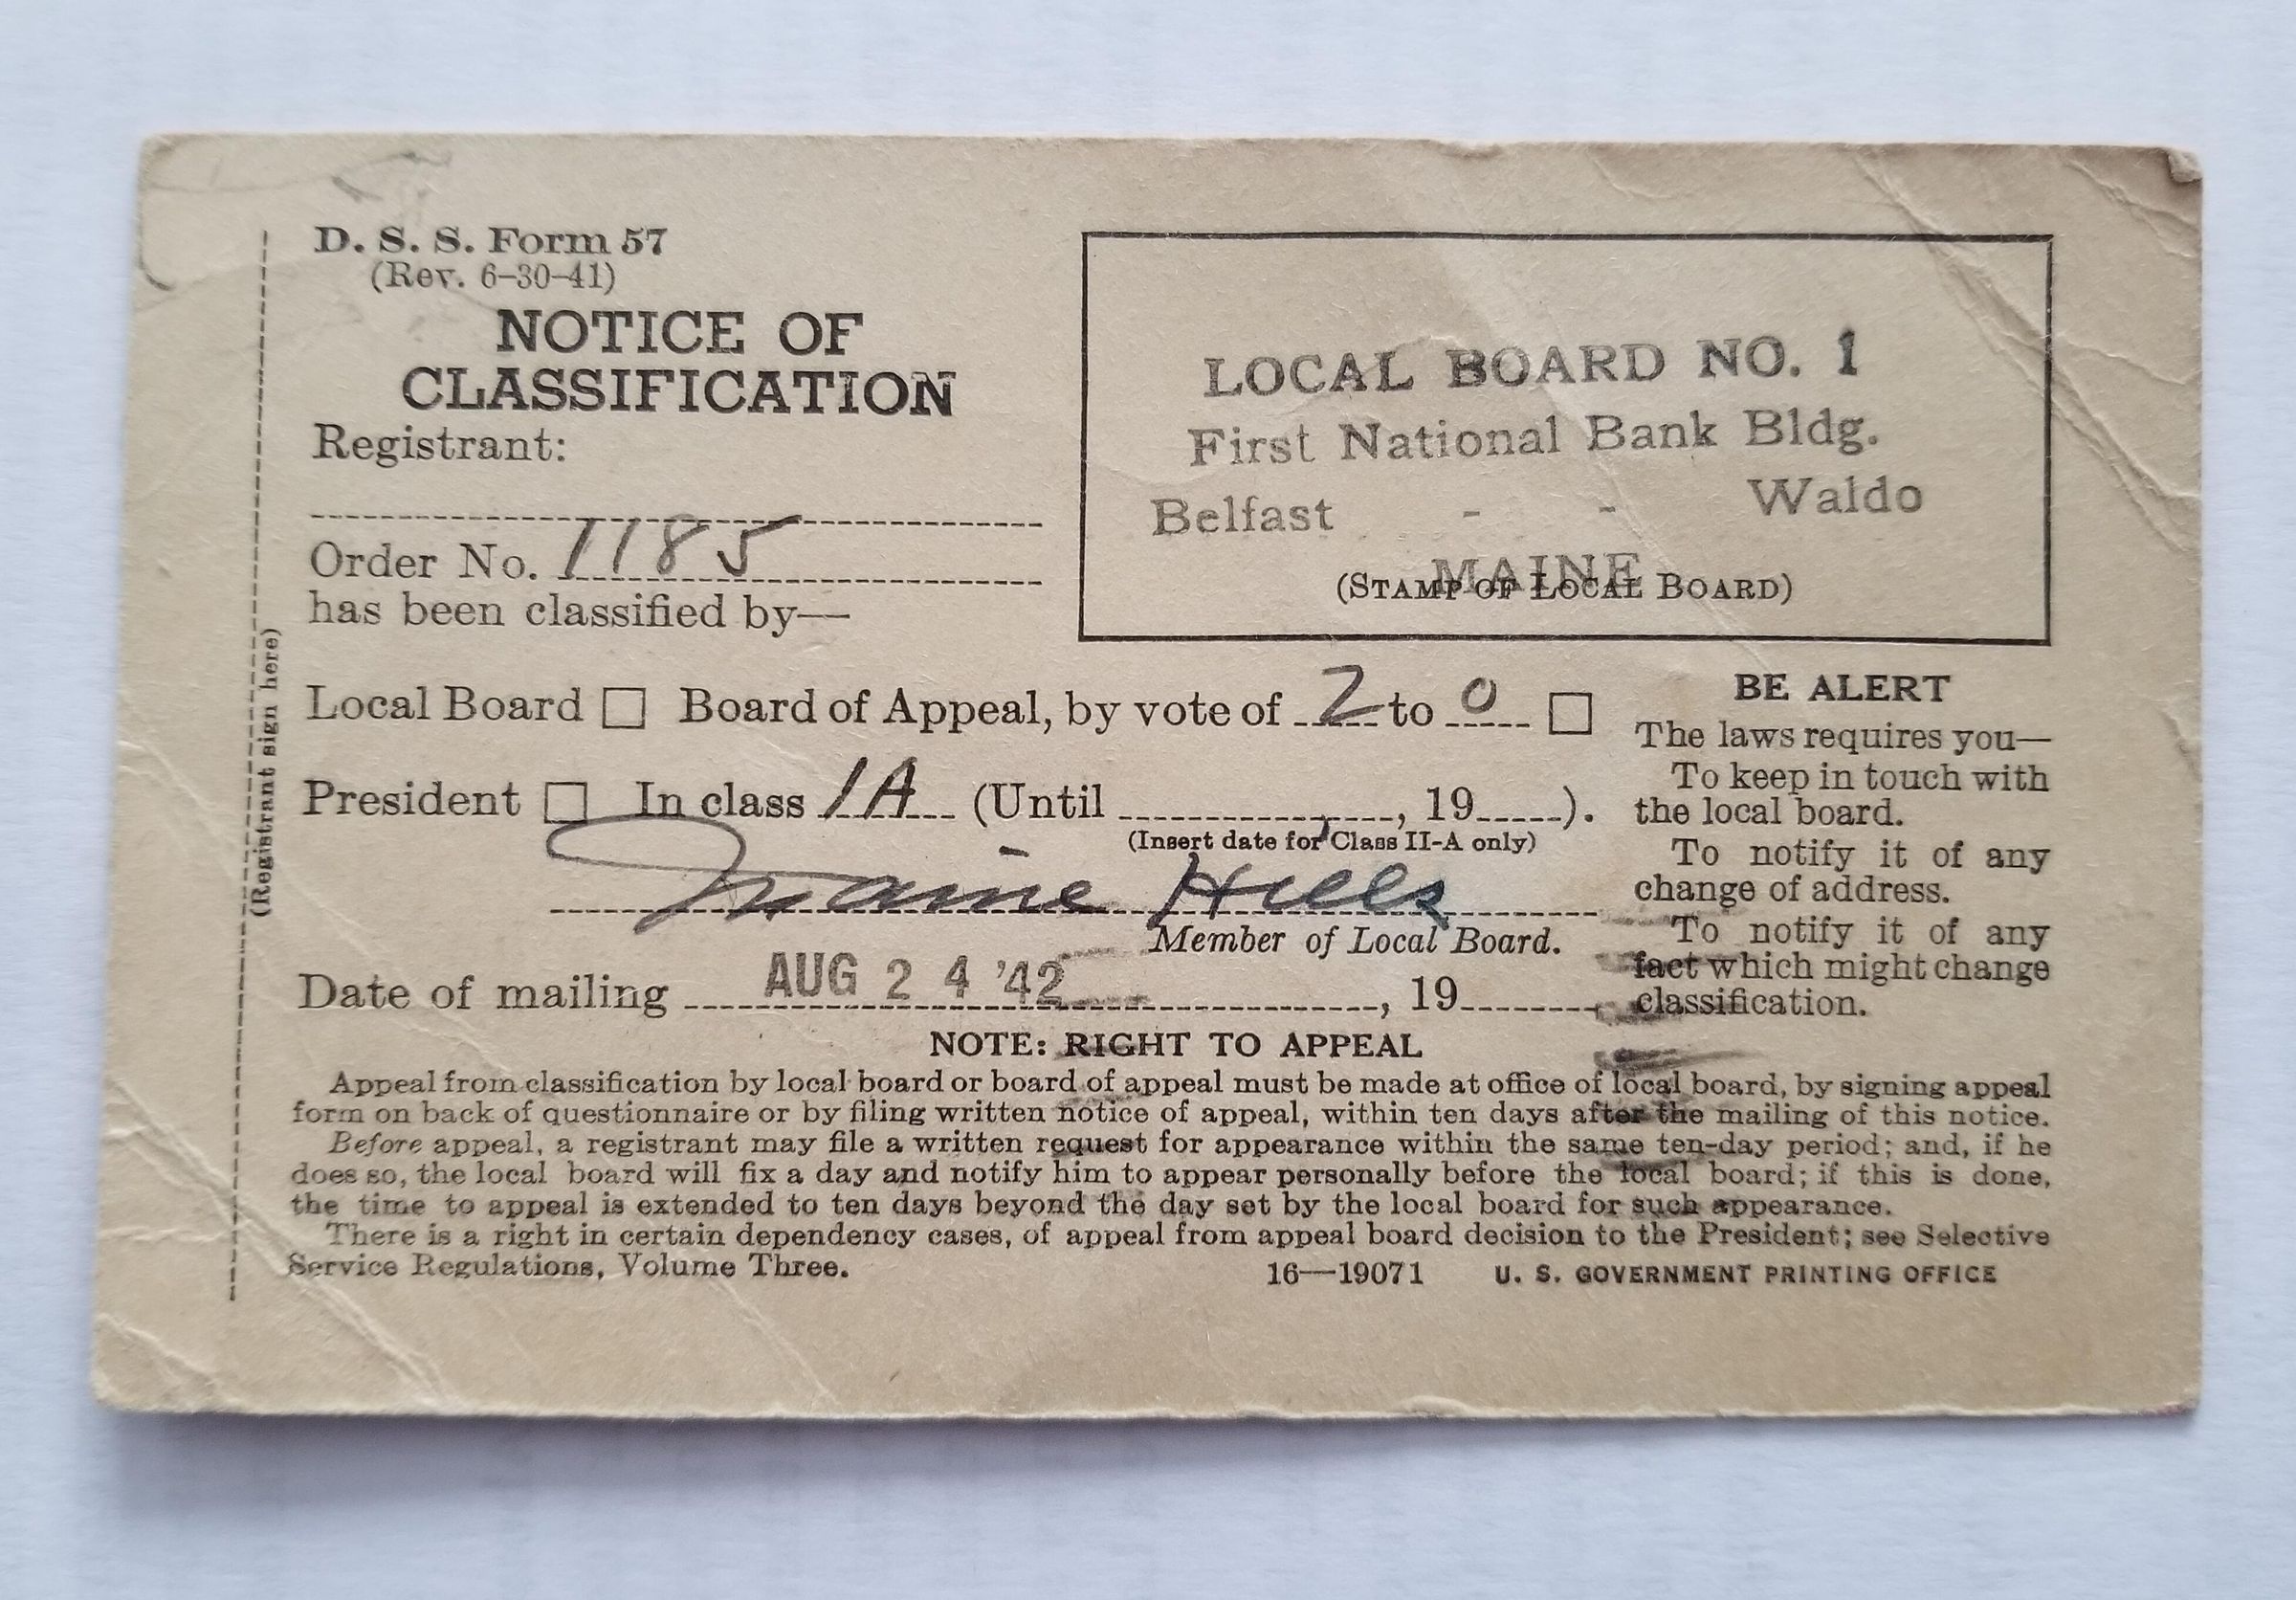 D. S. S. Form 57
(Rev. 6-30-41)
NOTICE OF
CLASSIFICATION
Registrant:
Order No. 1185
has been classified by—
LOCAL BOARD NO. 1
First National Bank Bldg.
Belfast - - Waldo
MAINE
(STAMP OF LOCAL BOARD)
(Registrant sign here)
Local Board □ Board of Appeal, by vote of 2 to 0 □
President □ In class 1A (Until , 19 ).
(Insert date for Class II-A only)
Hills
Member of Local Board.
Date of mailing AUG 24 '42 , 19
BE ALERT
The laws requires you—
To keep in touch with
the local board.
To notify it of any
change of address.
To notify it of any
fact which might change
classification.
NOTE: RIGHT TO APPEAL
Appeal from classification by local board or board of appeal must be made at office of local board, by signing appeal
form on back of questionnaire or by filing written notice of appeal, within ten days after the mailing of this notice.
Before appeal, a registrant may file a written request for appearance within the same ten-day period; and, if he
does so, the local board will fix a day and notify him to appear personally before the local board; if this is done,
the time to appeal is extended to ten days beyond the day set by the local board for such appearance.
There is a right in certain dependency cases, of appeal from appeal board decision to the President; see Selective
Service Regulations, Volume Three.
16—19071 U. S. GOVERNMENT PRINTING OFFICE